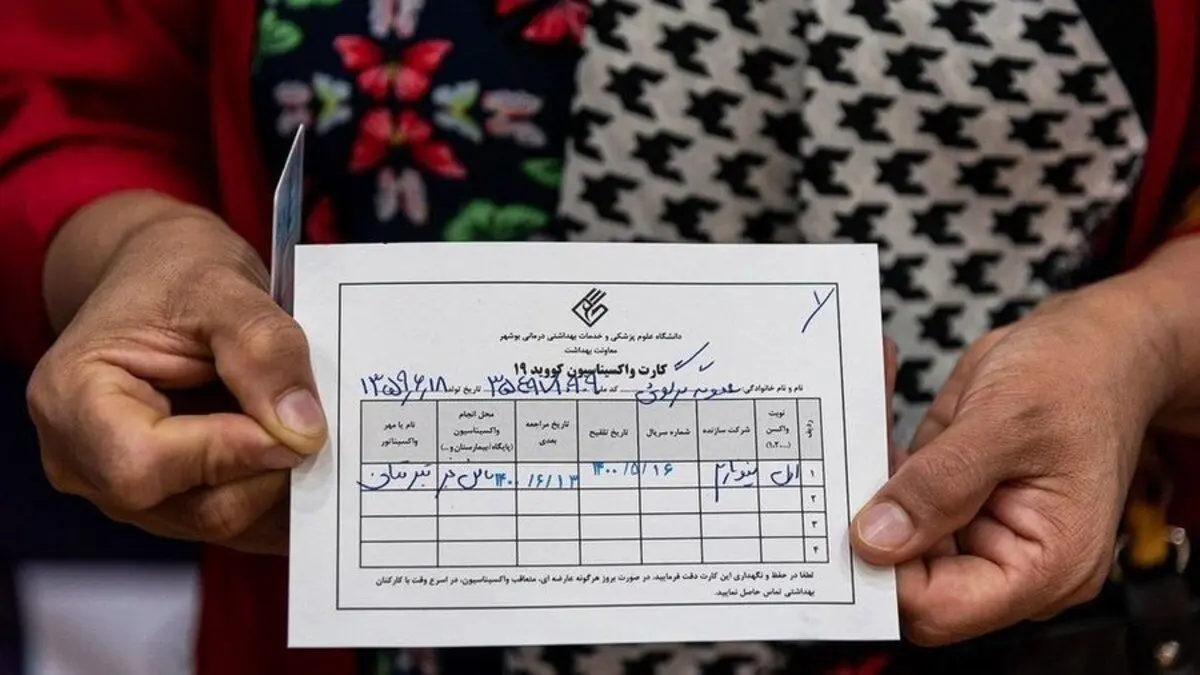 ۷
دانشگاه علوم پزشکی و خدمات بهداشتی درمانی بوشهر
معاونت بهداشت
کارت واکسیناسیون کووید ۱۹
نام و نام خانوادگی: کد ملی تاریخ تولد ۱۳۵۹/۶/۱۸
ردیف نوبت واکسن (۱،۲،...) شرکت سازنده شماره سریال تاریخ تلقیح تاریخ مراجعه بعدی محل انجام واکسیناسیون (پایگاه/بیمارستان و ...) نام یا مهر واکسیناتور
۱ اول ۱۴۰۰/۵/۱۶ ۱۴۰۰/۶/۱۳
۲
۳
۴
لطفا در حفظ و نگهداری این کارت دقت فرمایید، در صورت بروز هرگونه عارضه ای، متعاقب واکسیناسیون، در اسرع وقت با کارکنان
بهداشتی تماس حاصل نمایید.